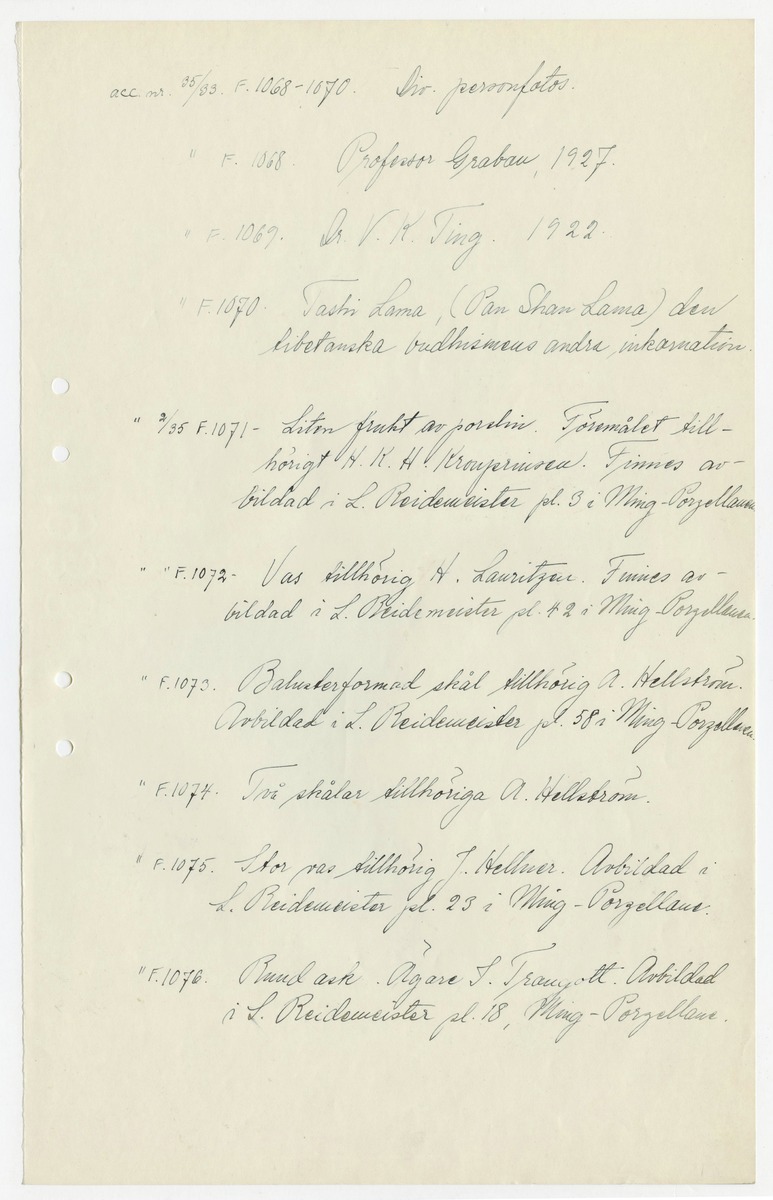 acc. nr. 35/33. F. 1068-1070. Div. personfotos.
" F. 1068. Professor Grabau, 1927.
" F. 1069. Dr. V. K. Ting. 1922.
" F. 1070. Tashi Lama, (Pan Shan Lama) den
tibetanska budhismens andra inkarnation.
" 2/35 F. 1071- Liten frukt av porslin. Föremålet till-
hörigt H. K. H. Kronprinsen. Finnes av-
bildad i L. Reidemeister pl. 3 i Ming-Porzellanen
" " F. 1072- Vas tillhörig H. Lauritzen. Finnes av-
bildad i L. Reidemeister pl. 42 i Ming-Porzellanen.
" F. 1073. Balusterformad skål tillhörig A. Hellström.
Avbildad i L. Reidemeister pl. 58 i Ming-Porzellanen.
" F. 1074. Två skålar tillhöriga A. Hellström.
" F. 1075. Stor vas tillhörig J. Hellner. Avbildad i
L. Reidemeister pl. 23 i Ming-Porzellane.
" F. 1076. Rund ask. Ägare I. Traugott. Avbildad
i L. Reidemeister pl. 18, Ming-Porzellane.